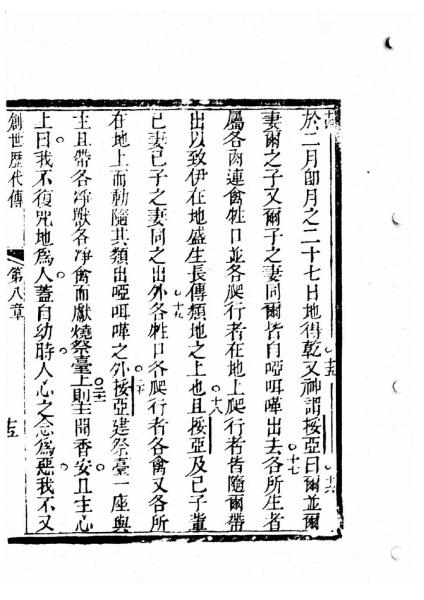 古
於二月卽月之二十七日地得乾又神謂挼亞曰爾並爾
十五
十六
妻爾之子又爾子之妻同爾皆自啞咡㗿出去各所生者
十七
屬各肉連禽牲口並各爬行者在地上爬行者皆隨爾帶
出以致伊在地盛生長傳類地之上也且挼亞及已子輩
十八
已妻已子之妻同之出外各牲口各爬行者各禽又各所
十九
在地上而動隨其類出啞咡㗿之外挼亞建祭臺一座與
二十
主且帶各淨獸各淨禽而獻燒祭臺上則主聞香安且主心
二一
上曰我不復咒地爲人蓋自幼時人心之念爲惡我不又
創世歷代傳 第八章 十五